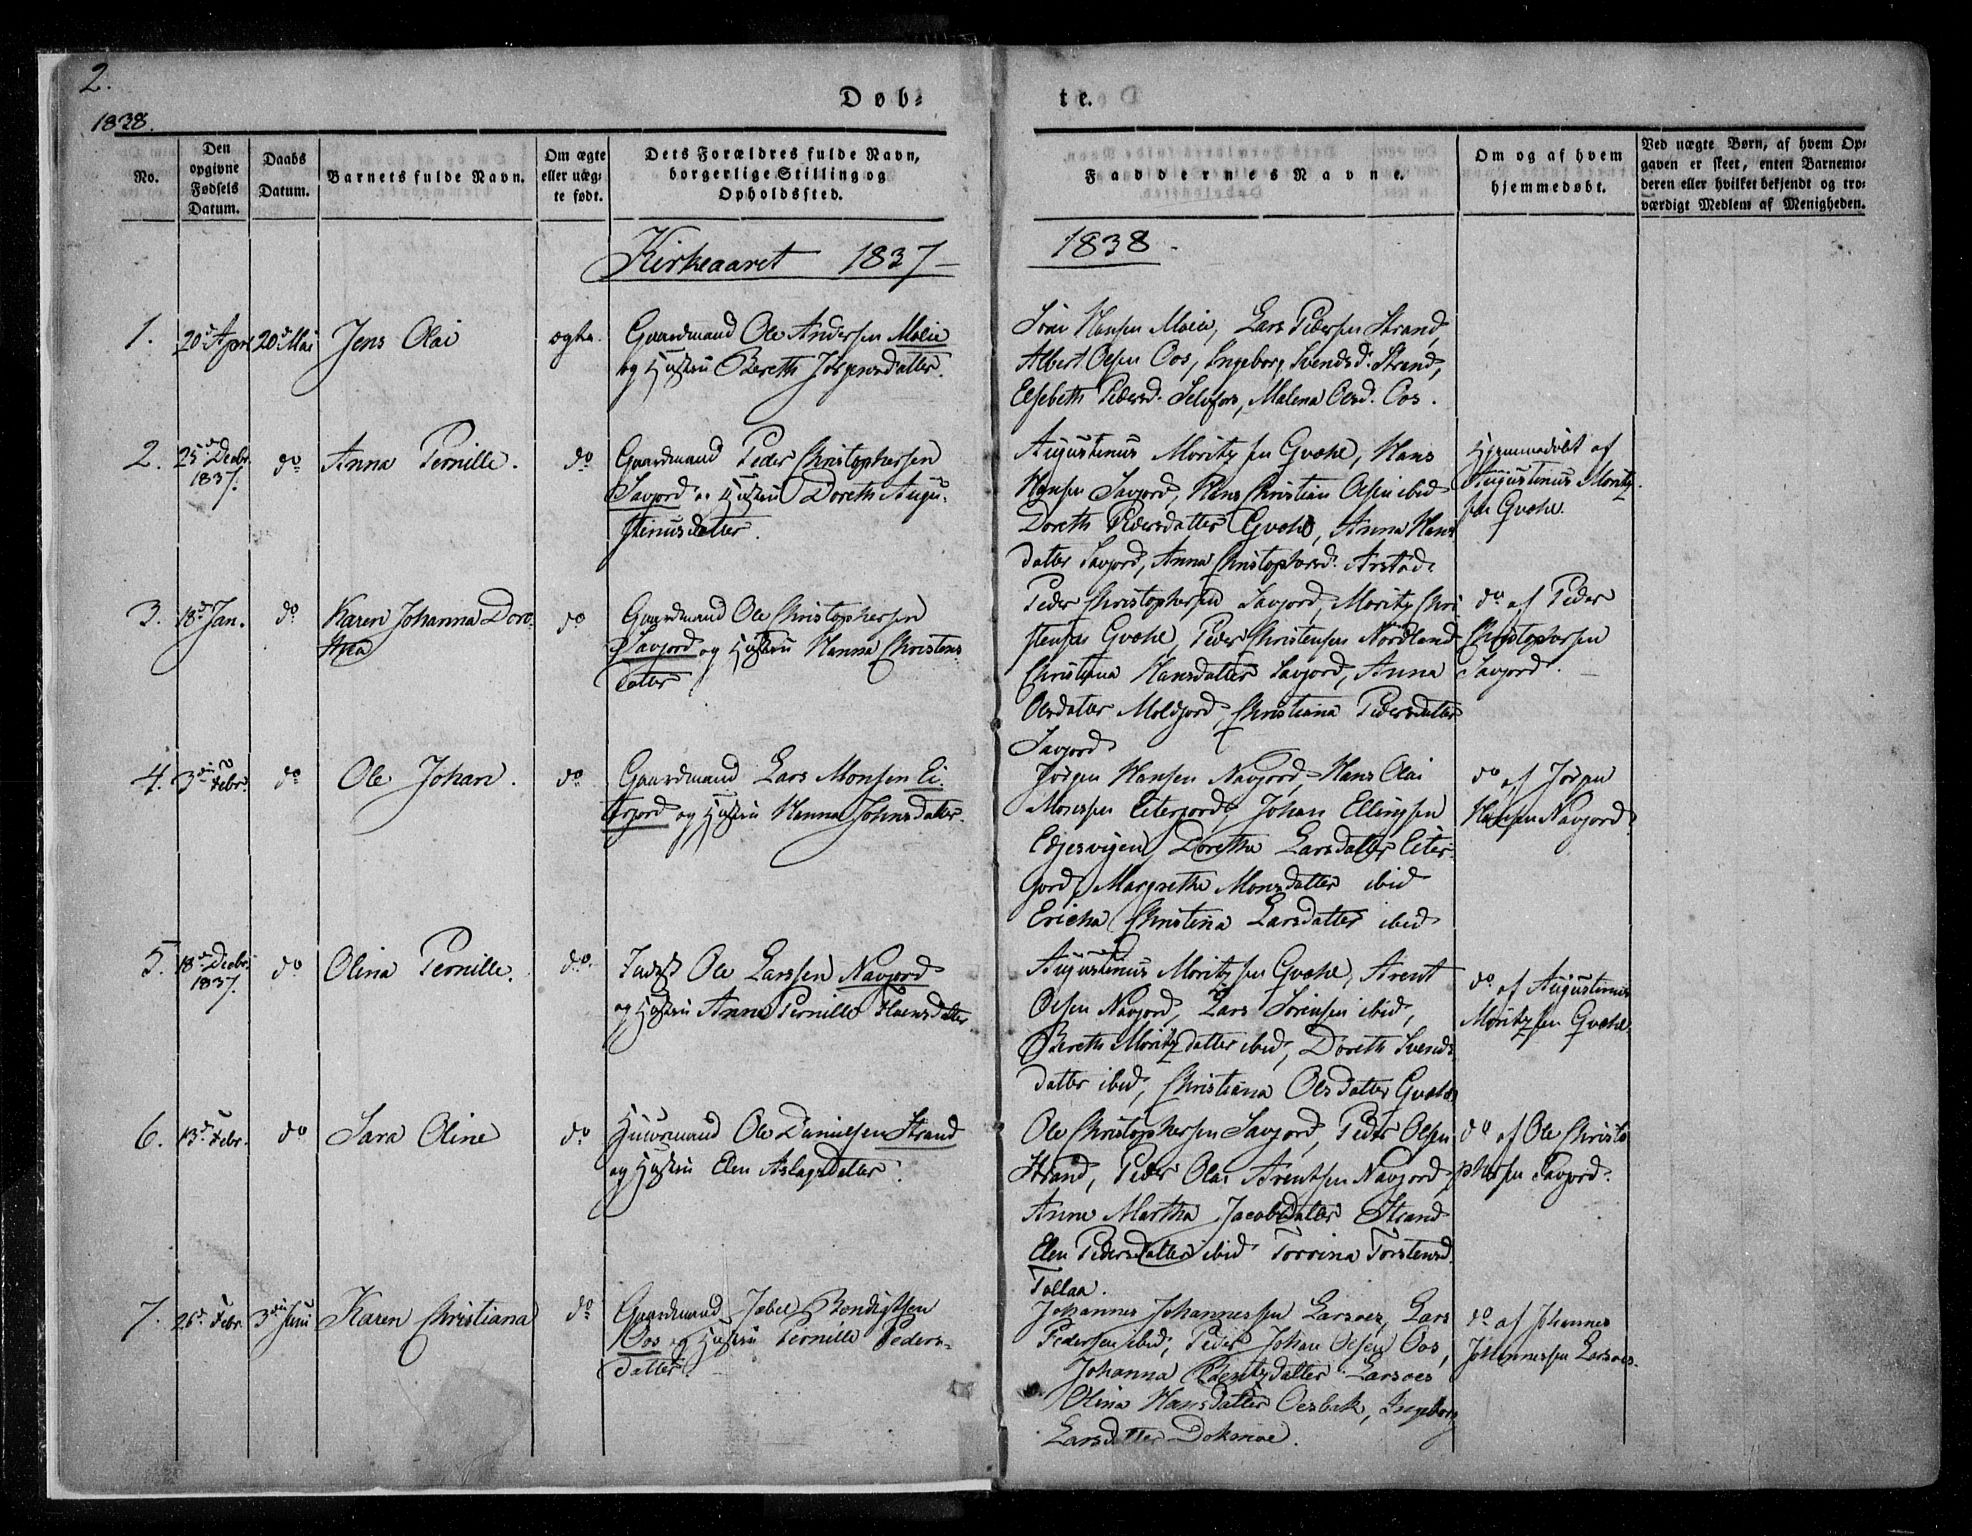 2.
1838.
Døb-
te.
No.
Den
opgivne
Fødsels
Datum.
Daabs
Datum.
Barnets fulde Navn.
Om ægte
eller uæg-
te født.
Dets Forældres fulde Navn,
borgerlige Stilling og
Opholdssted.
Faddernes Navne.
Om og af hvem
hjemmedøbt.
Ved uægte Børn, af hvem Op-
gaven er skeet, enten Barnemo-
deren eller hvilket bekjendt og tro-
værdigt Medlem af Menigheden.
Kirkeaaret 1837 –
1838 –
1. 20d April 20d Mai Jens Olai ægte. Gaardmand Ole Andersen Molie
og Hustru Bereth Jørgensdatter.
Hansen Molie, Lars Pedersen Strand,
Albert Olsen Oos, Ingeborg Svendsd. Strand,
Elsebeth Pedersd. Selfors, Malena Olsd. Oos.
2. 25d Decbr.
1837. do Anna Pernille. do Gaardmand Peder Christophersen
Savjord og Hustru Doreth Augu-
stinusdatter.
Augustinus Moritzsen Gvæhl, Hans
Hansen Savjord, Hans Christian Olsen ibid
Doreth Pedersdatter Gvæhl, Anna Hans
datter Savjord, Anna Christophersd. Arstad.
Hjemmedøbt af
Augustinus Moritz-
sen Gvæhl.
3. 18d Jan. do Karen Johanna Doro-
thea do Gaardmand Ole Christophersen
Savjord og Hustru Hanna Christens
datter
Peder Christophersen Savjord, Moritz Chri
stensen Gvæhl, Peder Christensen Nordland
Christina Hansdatter Savjord, Anna
Olsdatter Moldjord, Christiana Pedersdatter
Savjord
do af Peder
Christophersen
Savjord.
4. 3die Febr. do Ole Johan. do Gaardmand Lars Monsen Ei-
terjord og Hustru Hanna Johnsdatter.
Jørgen Hansen Navjord, Hans Olai
Monsen Eiterjord, Johan Ellingsen
Edjesvigen, Dorethe Larsdatter Eiter-
jord, Margrethe Monsdatter ibid
Ericha Christina Larsdatter ibid
do af Jørgen
Hansen Navjord.
5. 18d Decbr.
1837. do Olina Pernille. do. Inderst Ole Larssen Navjord
og Hustru Anne Pernille Hansdatter
Augustinus Moritzsen Gvæhl, Arent
Olsen Navjord, Lars Sørensen ibid,
Bereth Moritzdatter ibid, Doreth Svends
datter ibid, Christiana Olsdatter Gvæhl
do af Augustinus
Moritzsen Gvæhl.
6. 13d Febr. do Sara Oline do Huusmand Ole Danielsen Strand
og Hustru Elen Aslagsdatter.
Ole Christophersen Savjord, Peder Olsen
Strand, Peder Olai Arentsen Navjord,
Anne Martha Jacobsdatter Strand
Elen Pedersdatter ibid Torvina Torstensd
Tollaa.
do af Ole Christo
phersen Savjord.
7. 26d Febr. 3die Juni Karen Christiana do Gaardmand Jabel Bendigtsen
Oos og Hustru Pernille Peders-
datter
Johannes Johannessen Larsoes, Lars
Pedersen ibid, Peder Johan Olsen Oos,
Johanna datter Larsoes
Olina Hansdatter Oesbak, Ingeborg
Larsdatter Dokmoe.
do af Johannes
Johannessen Larsoes.